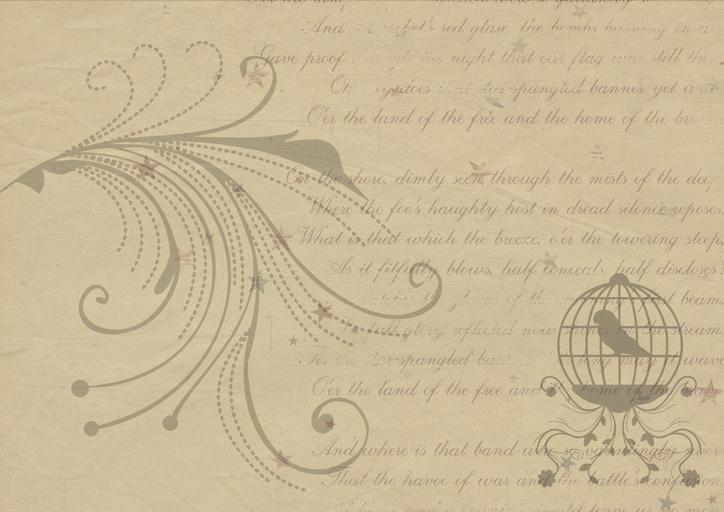 And rocket's red glare, the bombs bursting in a
Gave proof through the night that our flag was still the
Oh say does that star-spangled banner yet wave
O'er the land of the free and the home of the bra
On the shore, dimly seen through the mists of the deep
Where the foe's haughty host in dread silence reposes
What is that which the breeze, o'er the towering steep,
As it fitfully blows, half conceals, half discloses?
catches the gleam of the morning's first beam
In full glory reflected now shines in the stream
'Tis the star-spangled ban long may it wave
O'er the land of the free and the home of the
And where is that band who so vauntingly swor
That the havoc of war and the battle's confusion
would leave us no more